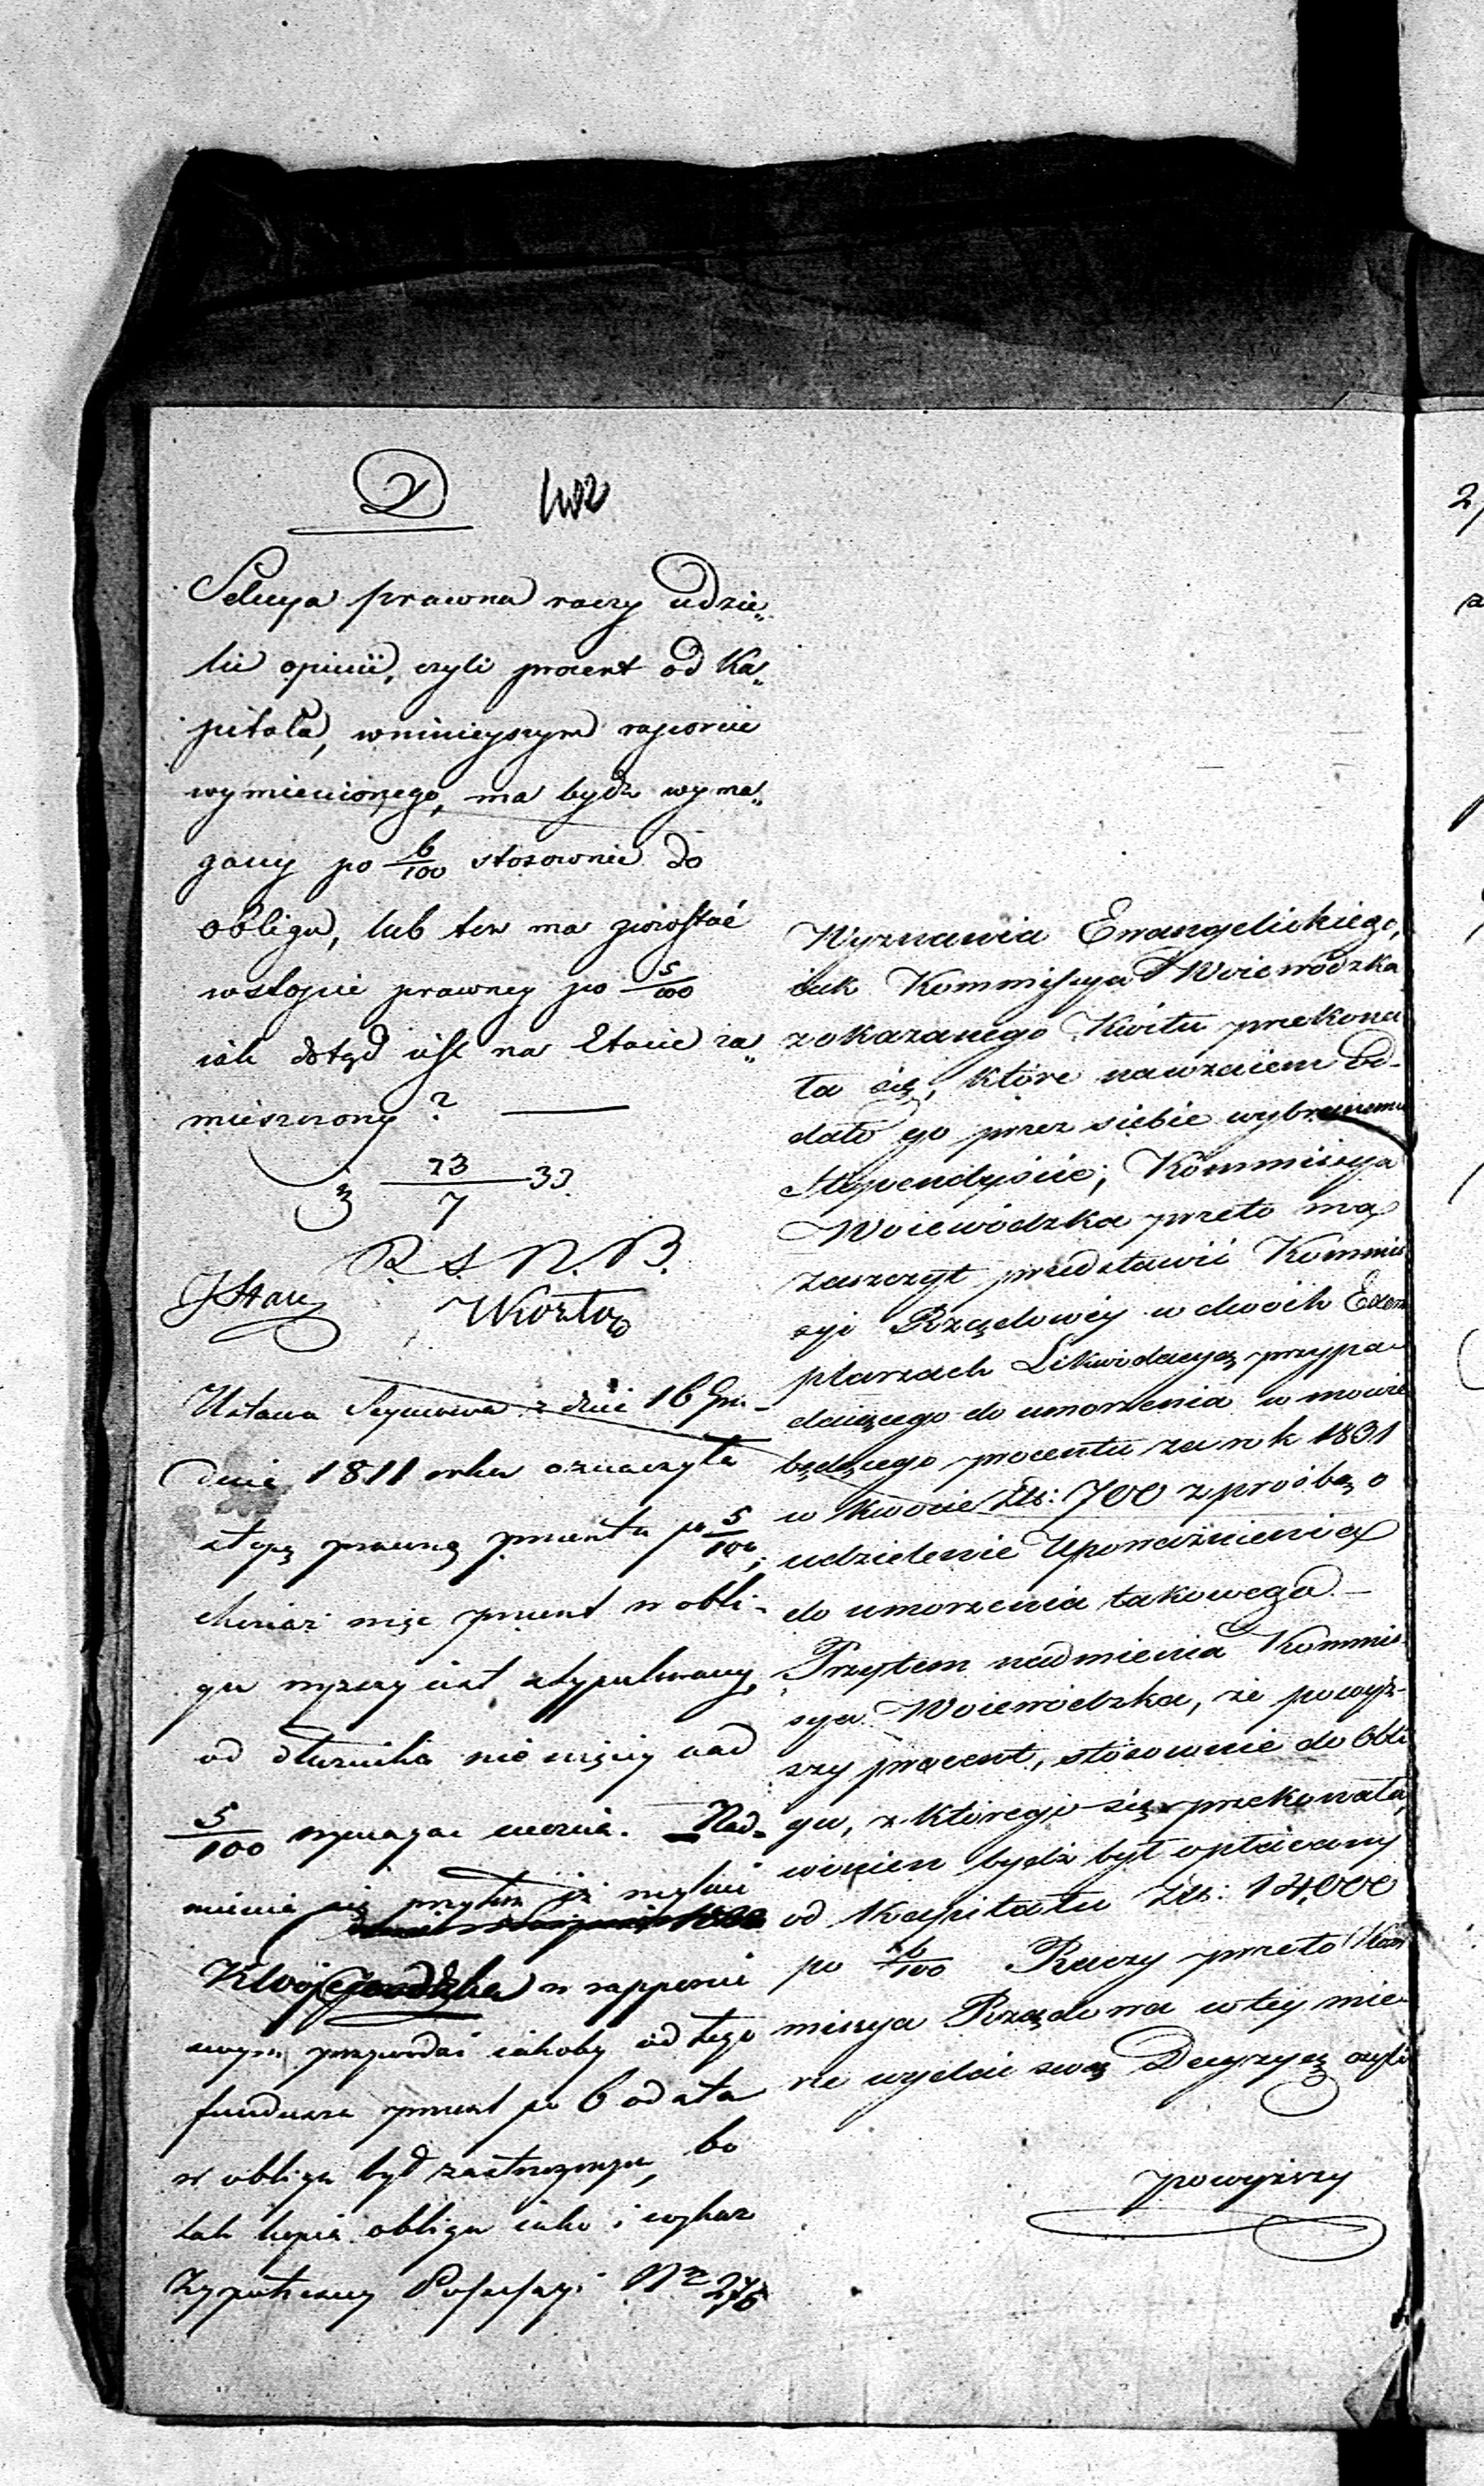 D
Sekcya prawna raczy udzie„
lić opinii, czyli procent od Ka„
pitału, w ninieyszym raporcie
wymienionego, ma bydź wyma„
gany po 6/100 stosownie do
obligu, lub ten ma pozostać
w stopie prawney po 5/100
iak dotąd iest na Etacie za„
mieszczony? —
3 23/7 33
R. S. N. B.
Ustawa Seymowa z dnia 16 Gru-
dnia 1811 roku oznaczyła
stopę prawną procentu po 5/100;
chociaż więc procent w obli-
gu wyższy iest stypulowany,
od dłużnika nie więcey nad
5/100 wymagać można. Nad-
mienia się przytem iż mylnie
K Wojewodzka w rapporcie
swym przywodzi iakoby od tego
funduszu procent po 6 od sta
w obligu był zastrzeżony, bo
tak kopia obligu iako i wykaz
Hypoteczny Possessyi Nr 276
Wyznania Ewangelickiego,
iak Kommissya Woiewódzka
z okazanego Kwitu przekona
ła się, które nawzaiem od-
dało go przez siebie wybranemu
Stypendyście; Kommissya
Woiewódzka przeto ma
zaszczyt przedstawić Kommis
syi Rządowéy w dwóch Exem
plarzach Likwidacyą przypa-
daiącego do umorzenia w mowie
będącego procentu za rok 1831
w kwocie Złt: 700 z prośbą o
udzielenie Upoważnienia
do umorzenia takowego. —
Przytem nadmienia Kommis
sya Woiewódzka, że powyż-
szy procent, stósownie do Obli
gu, z którego się przekonała,
winien bydź był opłacany
od Kapitału Złt: 14,000
po 6/100 Raczy przeto Kom
missya Rządowa w téy mie-
rze wydać swą Decyzyą czyli
powyższy